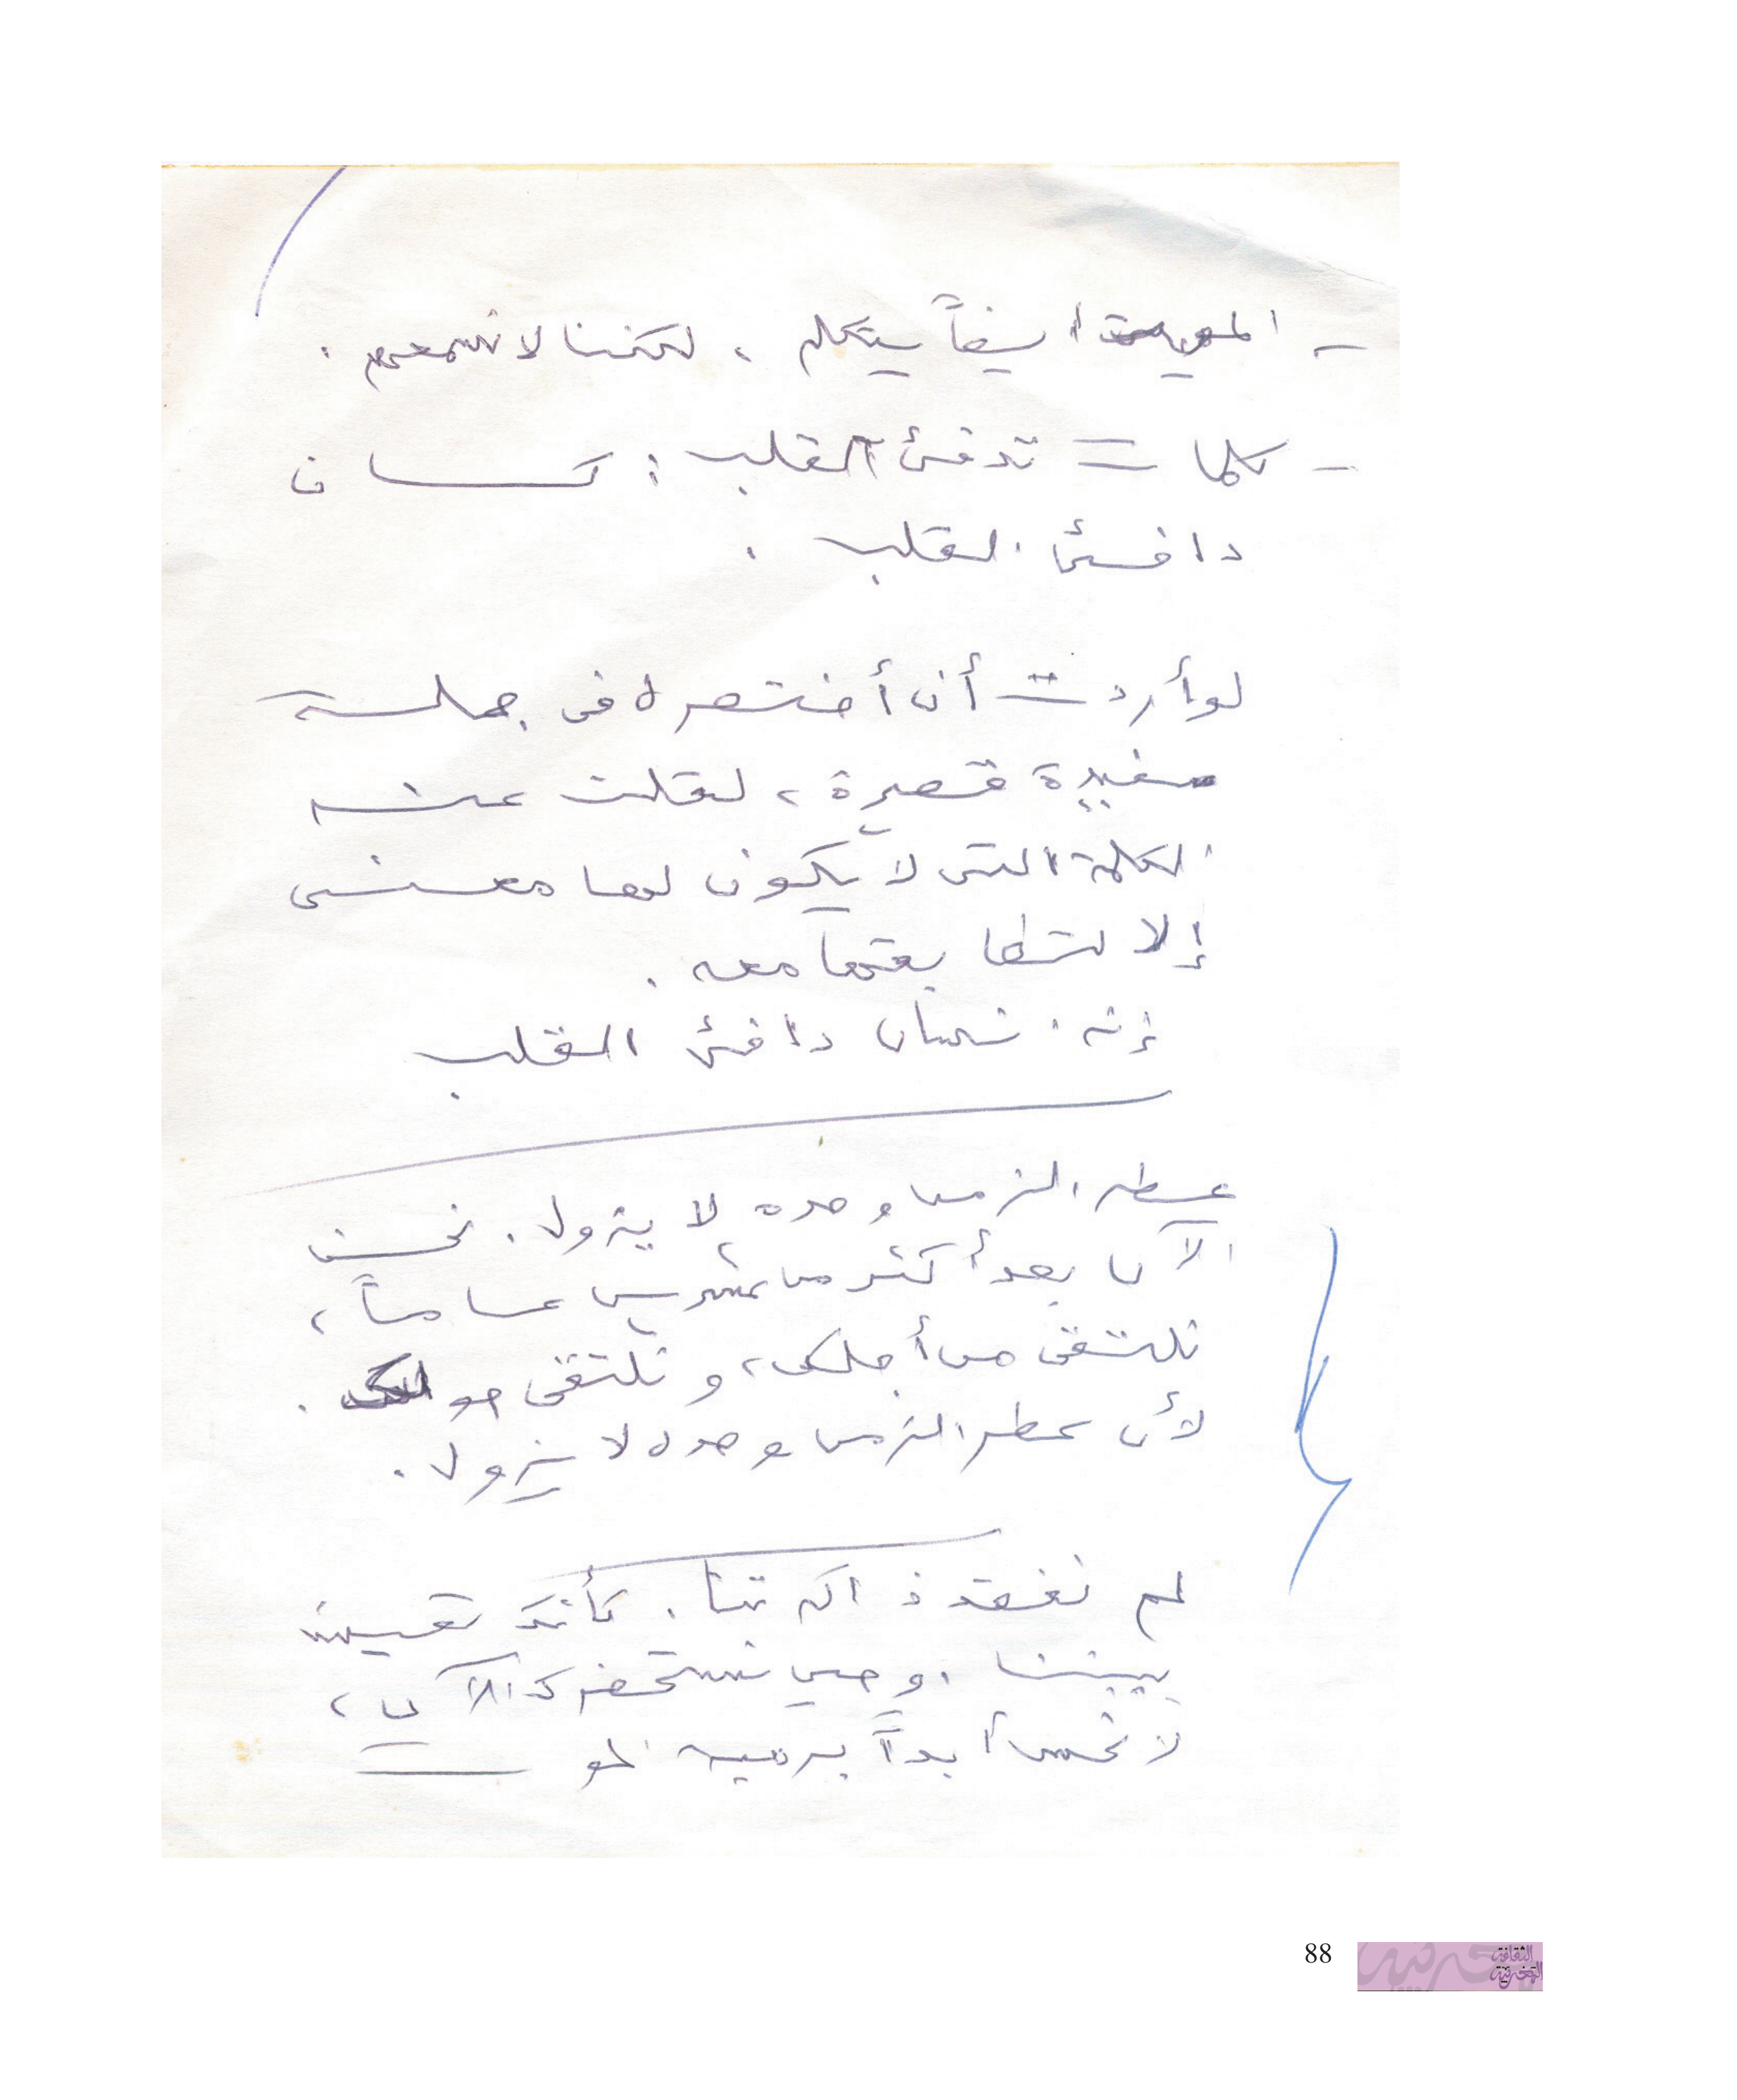 - الموت أيضاً يتكلم ، لكننا لا نسمعهم .
- كلمات تدفئ القلب : كان
دافئ القلب .
لو أردت أن أختصره في جملة
مفيدة قصيرة ، لقلت عنه
الكلمة التي لا يكون لها معنى
إلا لتطابقها معه .
إنه إنسان دافئ القلب
عطر الزمن وحده لا يزول . نحن
الآن بعد أكثر من عشرين عاماً ،
نلتقي من أجلك ، ونلتقي حولك .
لأن عطر الزمن وحده لا يزول .
لم نفقد ذاكرتنا . كأنك تعيش
بيننا ، وحين نستحضرك الآن ،
لا نحس أبداً برهبة الموت
88
الثقافة